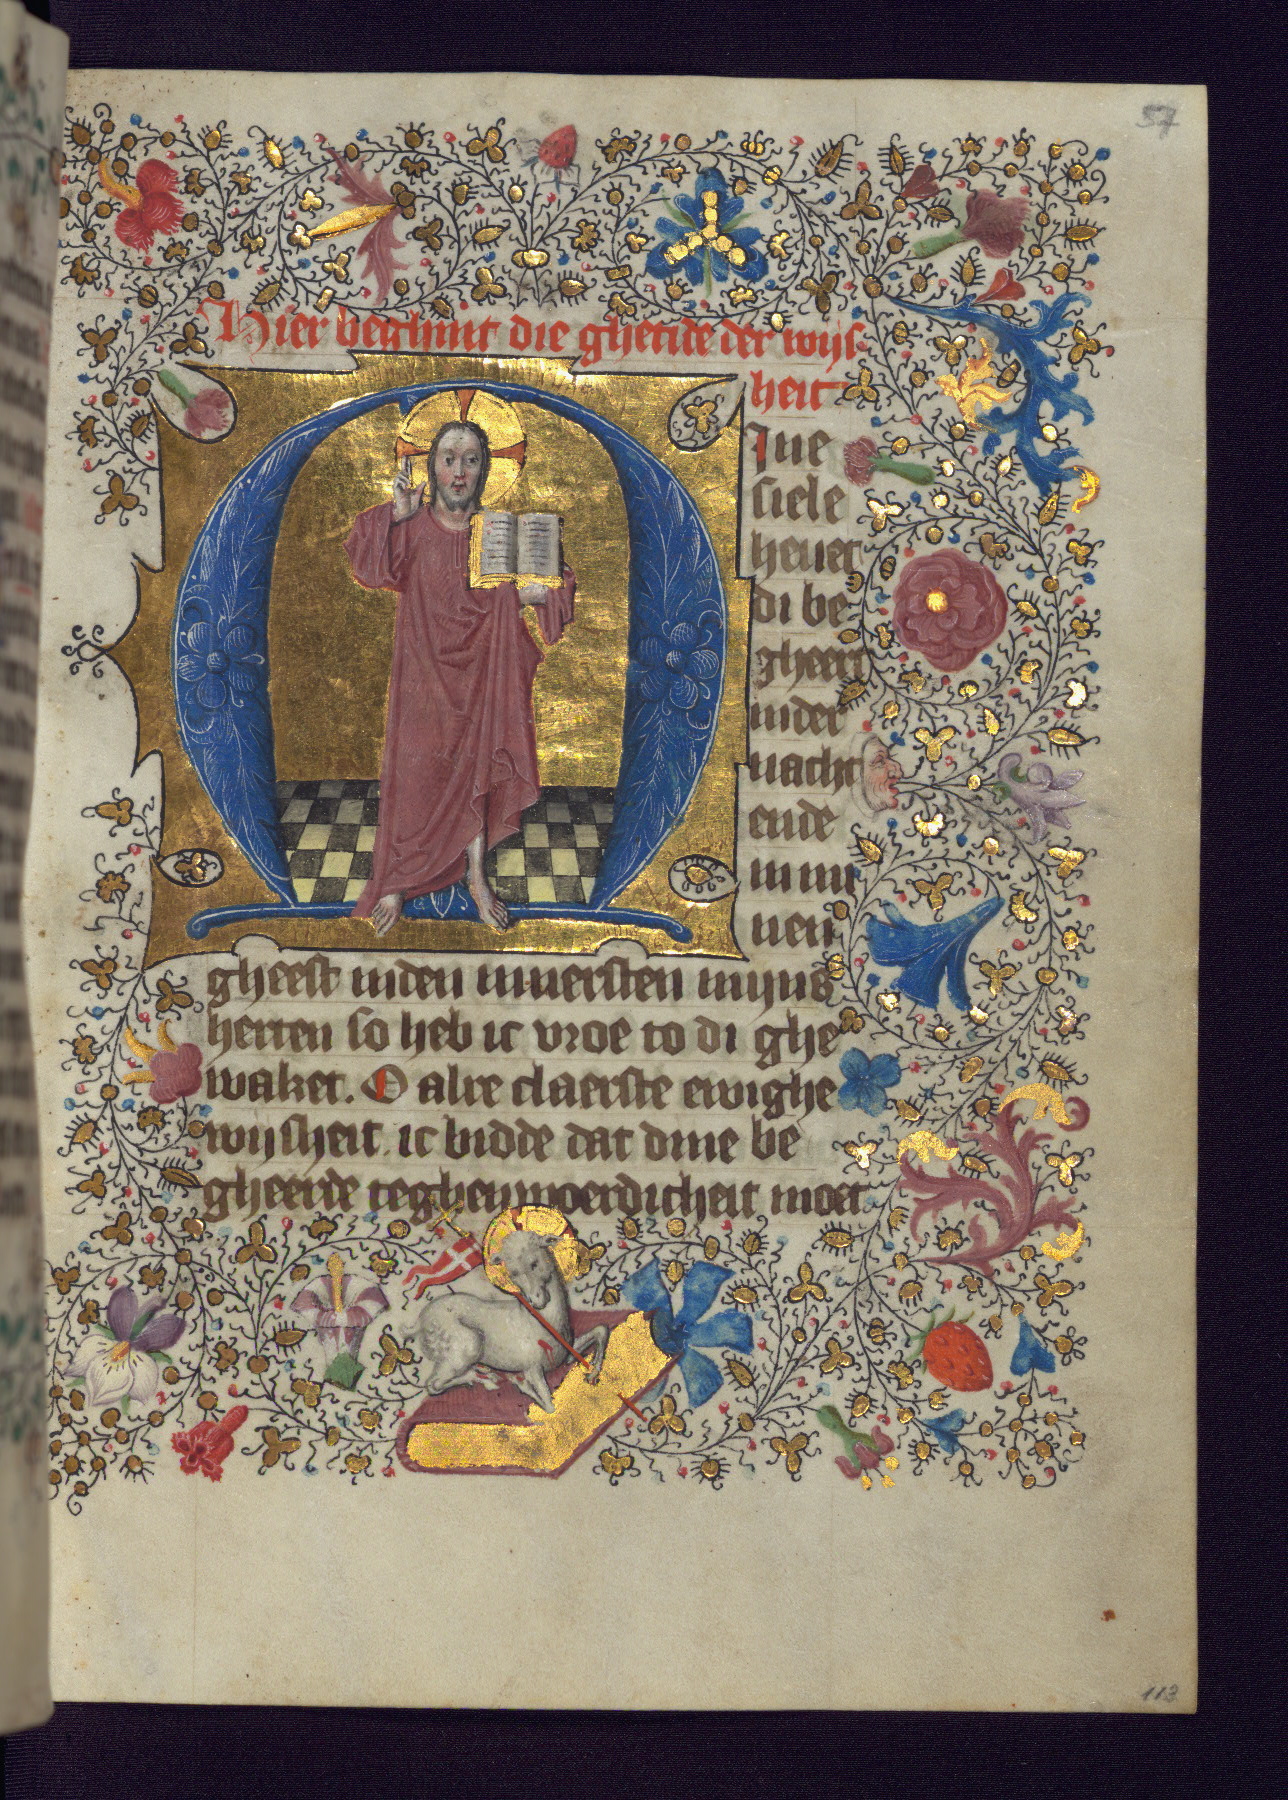 57
Hier beghint die ghetide der wijs
heit
M Ine
siele
heuet
di be
gheert
inder
nacht
ende
in mi
nen
gheest inden innersten mijns
herten so heb ic vroe to di ghe
waket. O alre claerste ewighe
wijsheit. ic bidde dat dine be
gheerde teghenwoerdicheit moet
113